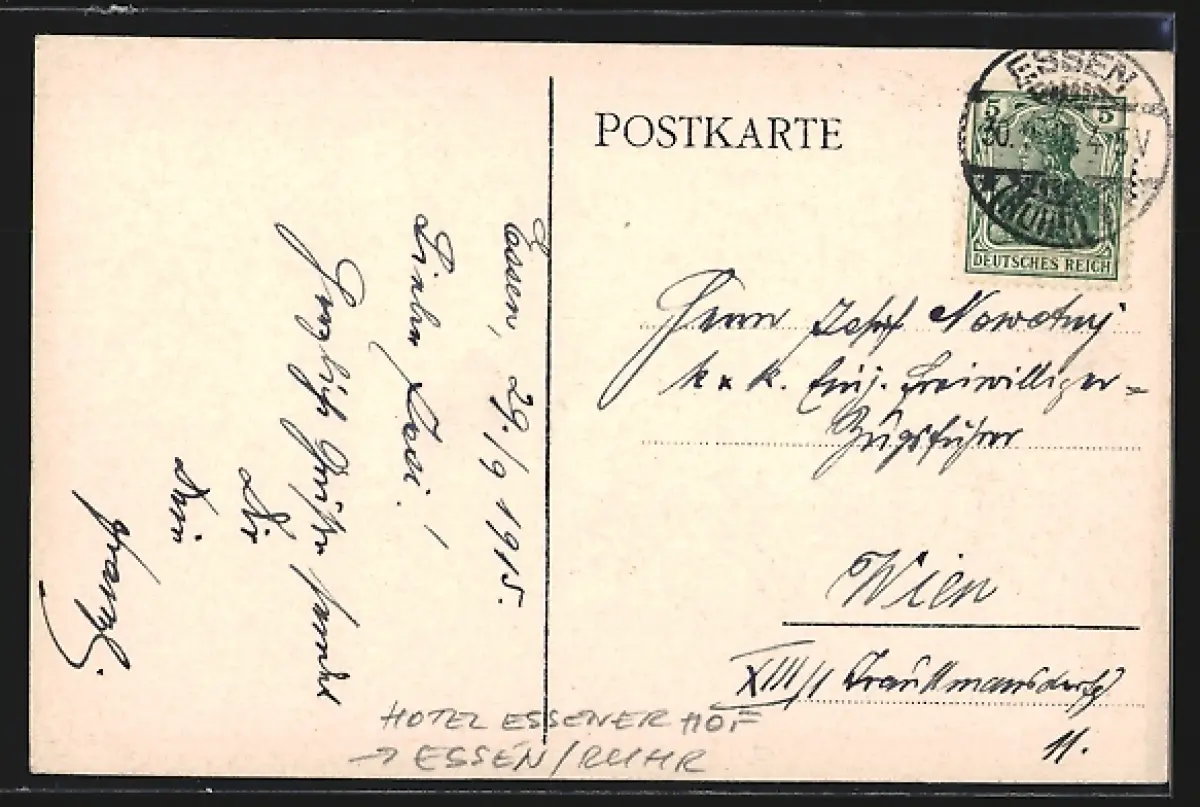 Essen, 29./9 1915.
Lieber Josi!
Herzlichste Grüße sendet
Dir
Dein
POSTKARTE
ESSEN
30. 4-5V
(RUHR)
5 5
DEUTSCHES REICH
Herrn Josef Nowotny
k. k. Einj. Freiwilliger=
Zugsführer
Wien
XIII/1 Trauttmansdorffg
11.
HOTEL ESSENER HOF
→ ESSEN/RUHR